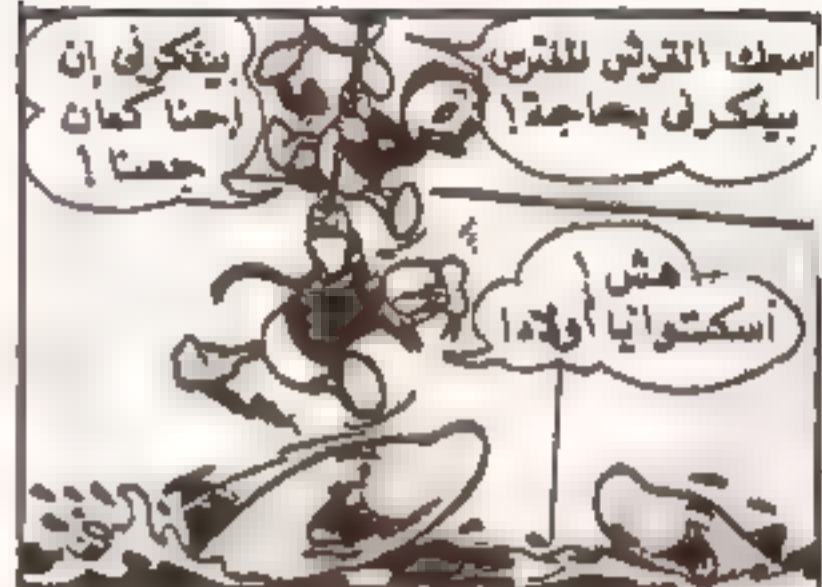 سمك القرش المفترس
بيفكرنى بحاجة !
بيفكرنى إن
إحنا كمان
جعنا !
هش
أسكتوا يا أولاد !